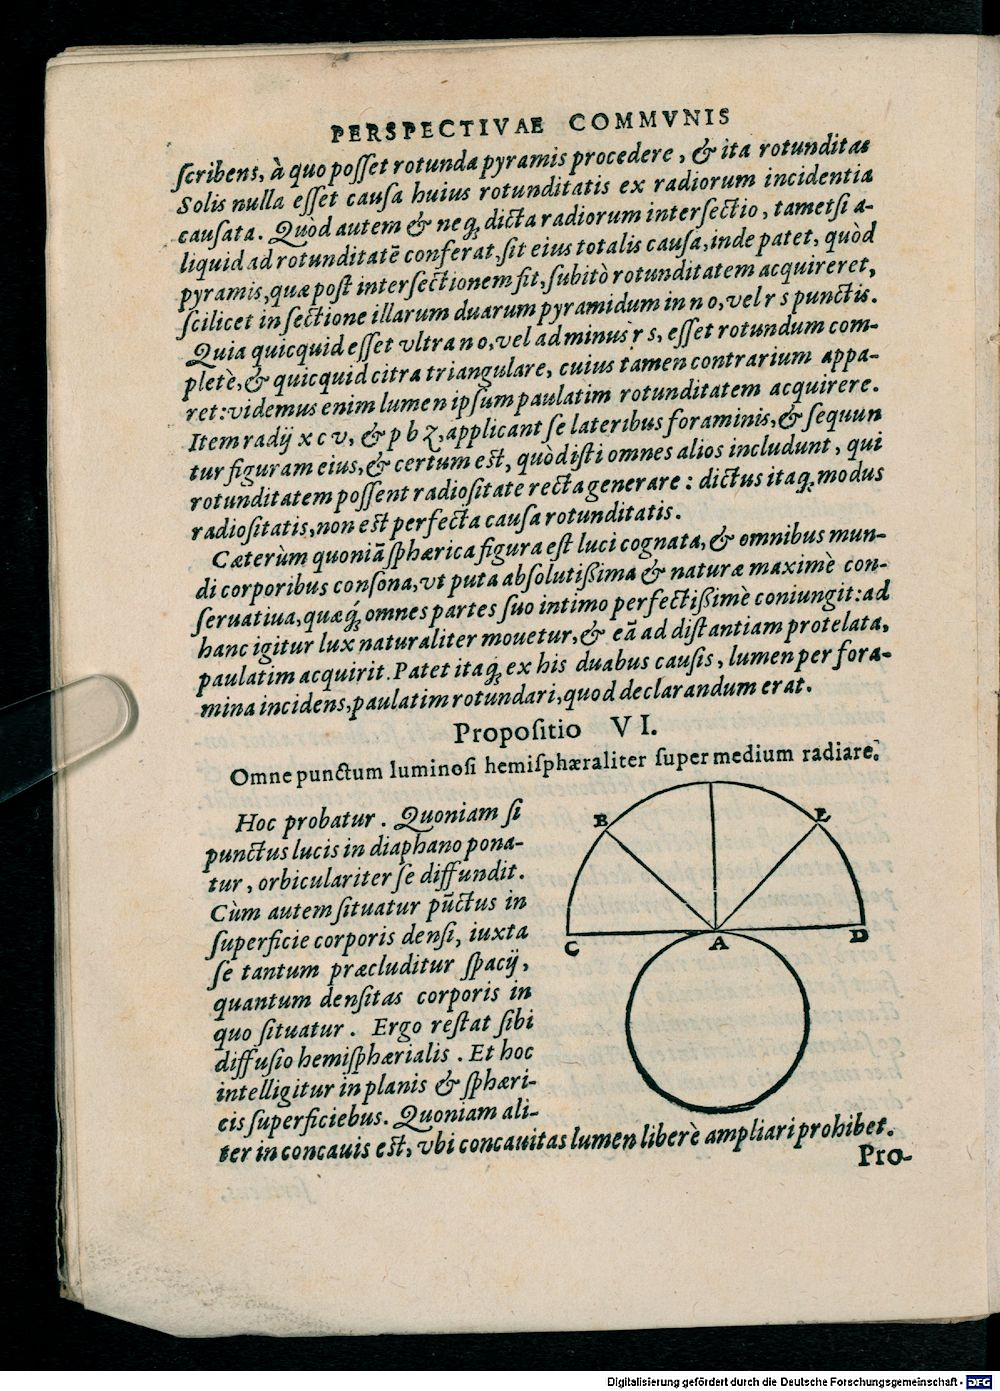 PERSPECTIVAE COMMVNIS
ſcribens, à quo poſſet rotunda pyramis procedere, & ita rotunditas
Solis nulla eſſet cauſa huius rotunditatis ex radiorum incidentia
cauſata. Quòd autem & neq; dicta radiorum interſectio, tametſi a-
liquid ad rotunditatē conferat, ſit eius totalis cauſa, inde patet, quòd
pyramis, quæ poſt interſectionem fit, ſubitò rotunditatem acquireret,
ſcilicet in ſectione illarum duarum pyramidum in n o, vel r s punctis.
Quia quicquid eſſet vltra n o, vel ad minus r s, eſſet rotundum com-
pletè, & quicquid citra triangulare, cuius tamen contrarium appa-
ret: videmus enim lumen ipſum paulatim rotunditatem acquirere.
Item radij x c v, & p b z, applicant ſe lateribus foraminis, & ſequun
tur figuram eius, & certum eſt, quòd iſti omnes alios includunt, qui
rotunditatem poſſent radioſitate recta generare: dictus itaq; modus
radioſitatis, non eſt perfecta cauſa rotunditatis.
Cæterùm quoniā ſphærica figura eſt luci cognata, & omnibus mun-
di corporibus conſona, vt puta abſolutißima & naturæ maximè con-
ſeruatiua, quæq́; omnes partes ſuo intimo perfectißimè coniungit: ad
hanc igitur lux naturaliter mouetur, & eā ad diſtantiam protelata,
paulatim acquirit. Patet itaq; ex his duabus cauſis, lumen per fora-
mina incidens, paulatim rotundari, quod declarandum erat.
Propoſitio VI.
Omne punctum luminoſi hemiſphæraliter ſuper medium radiare.
Hoc probatur. Quoniam ſi
punctus lucis in diaphano pona-
tur, orbiculariter ſe diffundit.
Cùm autem ſituatur pūctus in
ſuperficie corporis denſi, iuxta
ſe tantum præcluditur ſpacij,
quantum denſitas corporis in
quo ſituatur. Ergo reſtat ſibi
diffuſio hemiſphærialis. Et hoc
intelligitur in planis & ſphæri-
cis ſuperficiebus. Quoniam ali-
ter in concauis eſt, vbi concauitas lumen liberè ampliari prohibet.
B
E
C
A
D
Pro-
Digitalisierung gefördert durch die Deutsche Forschungsgemeinschaft - DFG